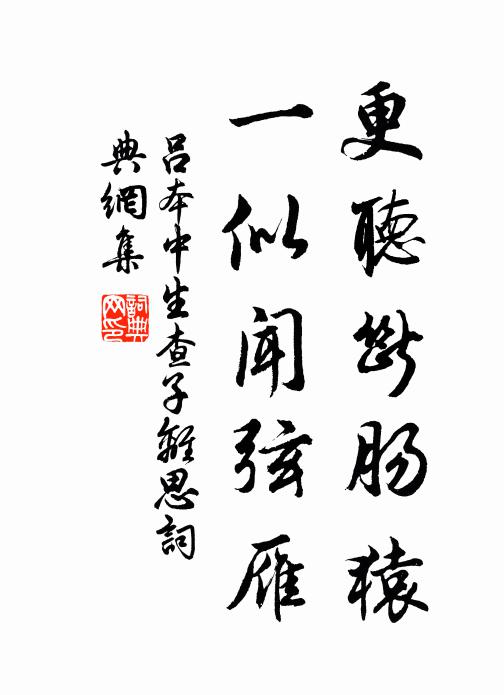 更聽斷肠猿
一似闻弦雁
吕本中生查子離思詞
典網集
詞典网印